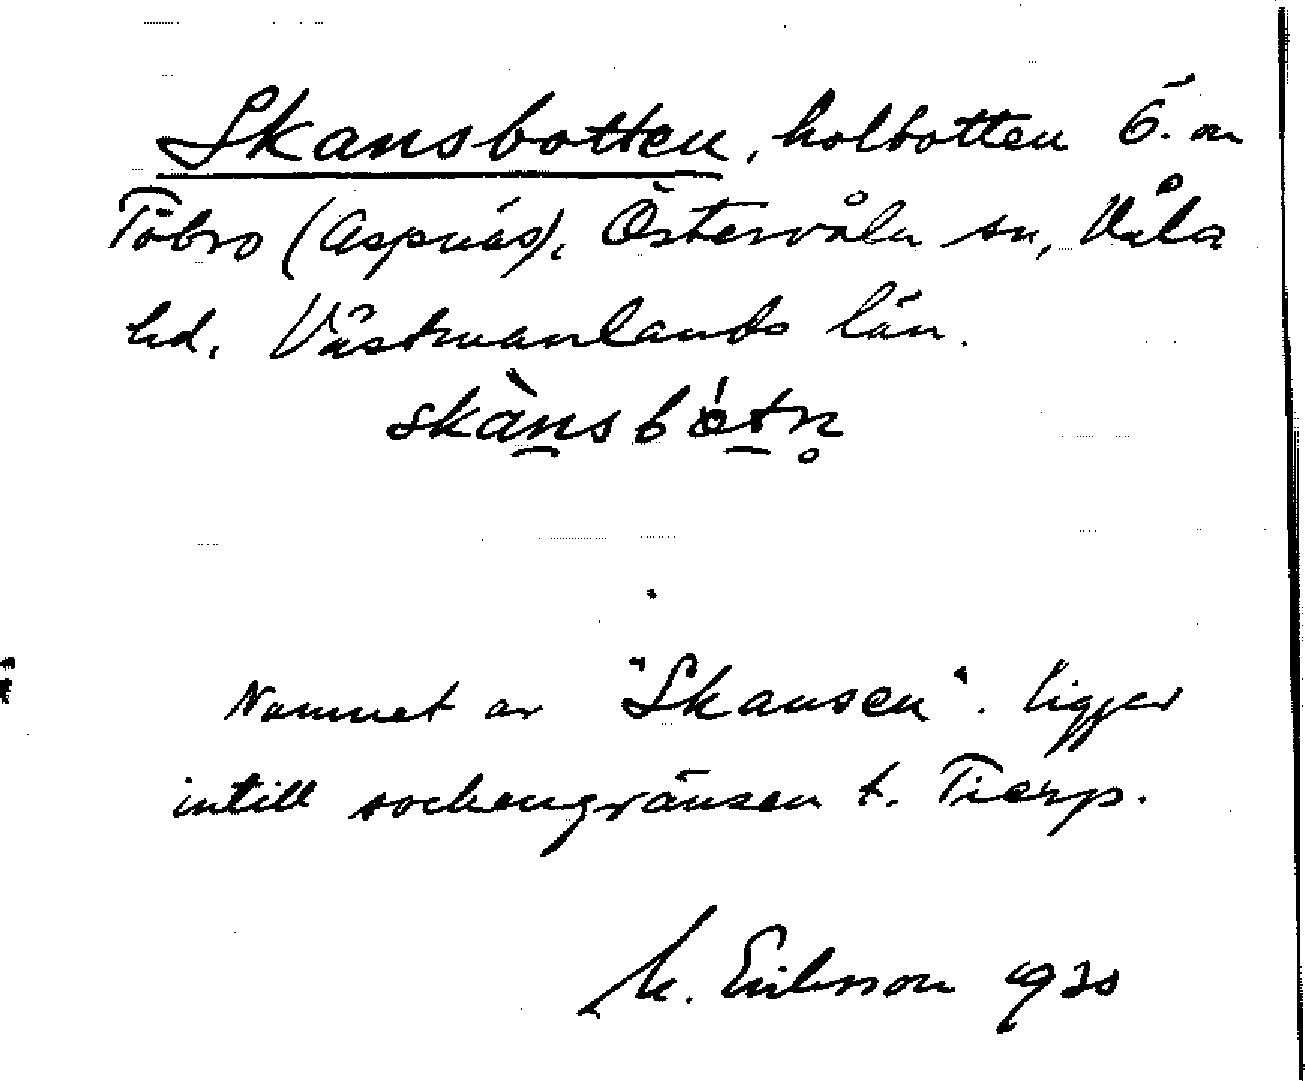 Skansbotten, kolbotten Ö. om
Töbro (Aspnäs), Östervåla sn, Våla
hd. Västmanlands län.
skànsbòtn̥
Namnet av "Skansen". Ligger
intill sockengränsen t. Tierp.
M. Eriksson 1930